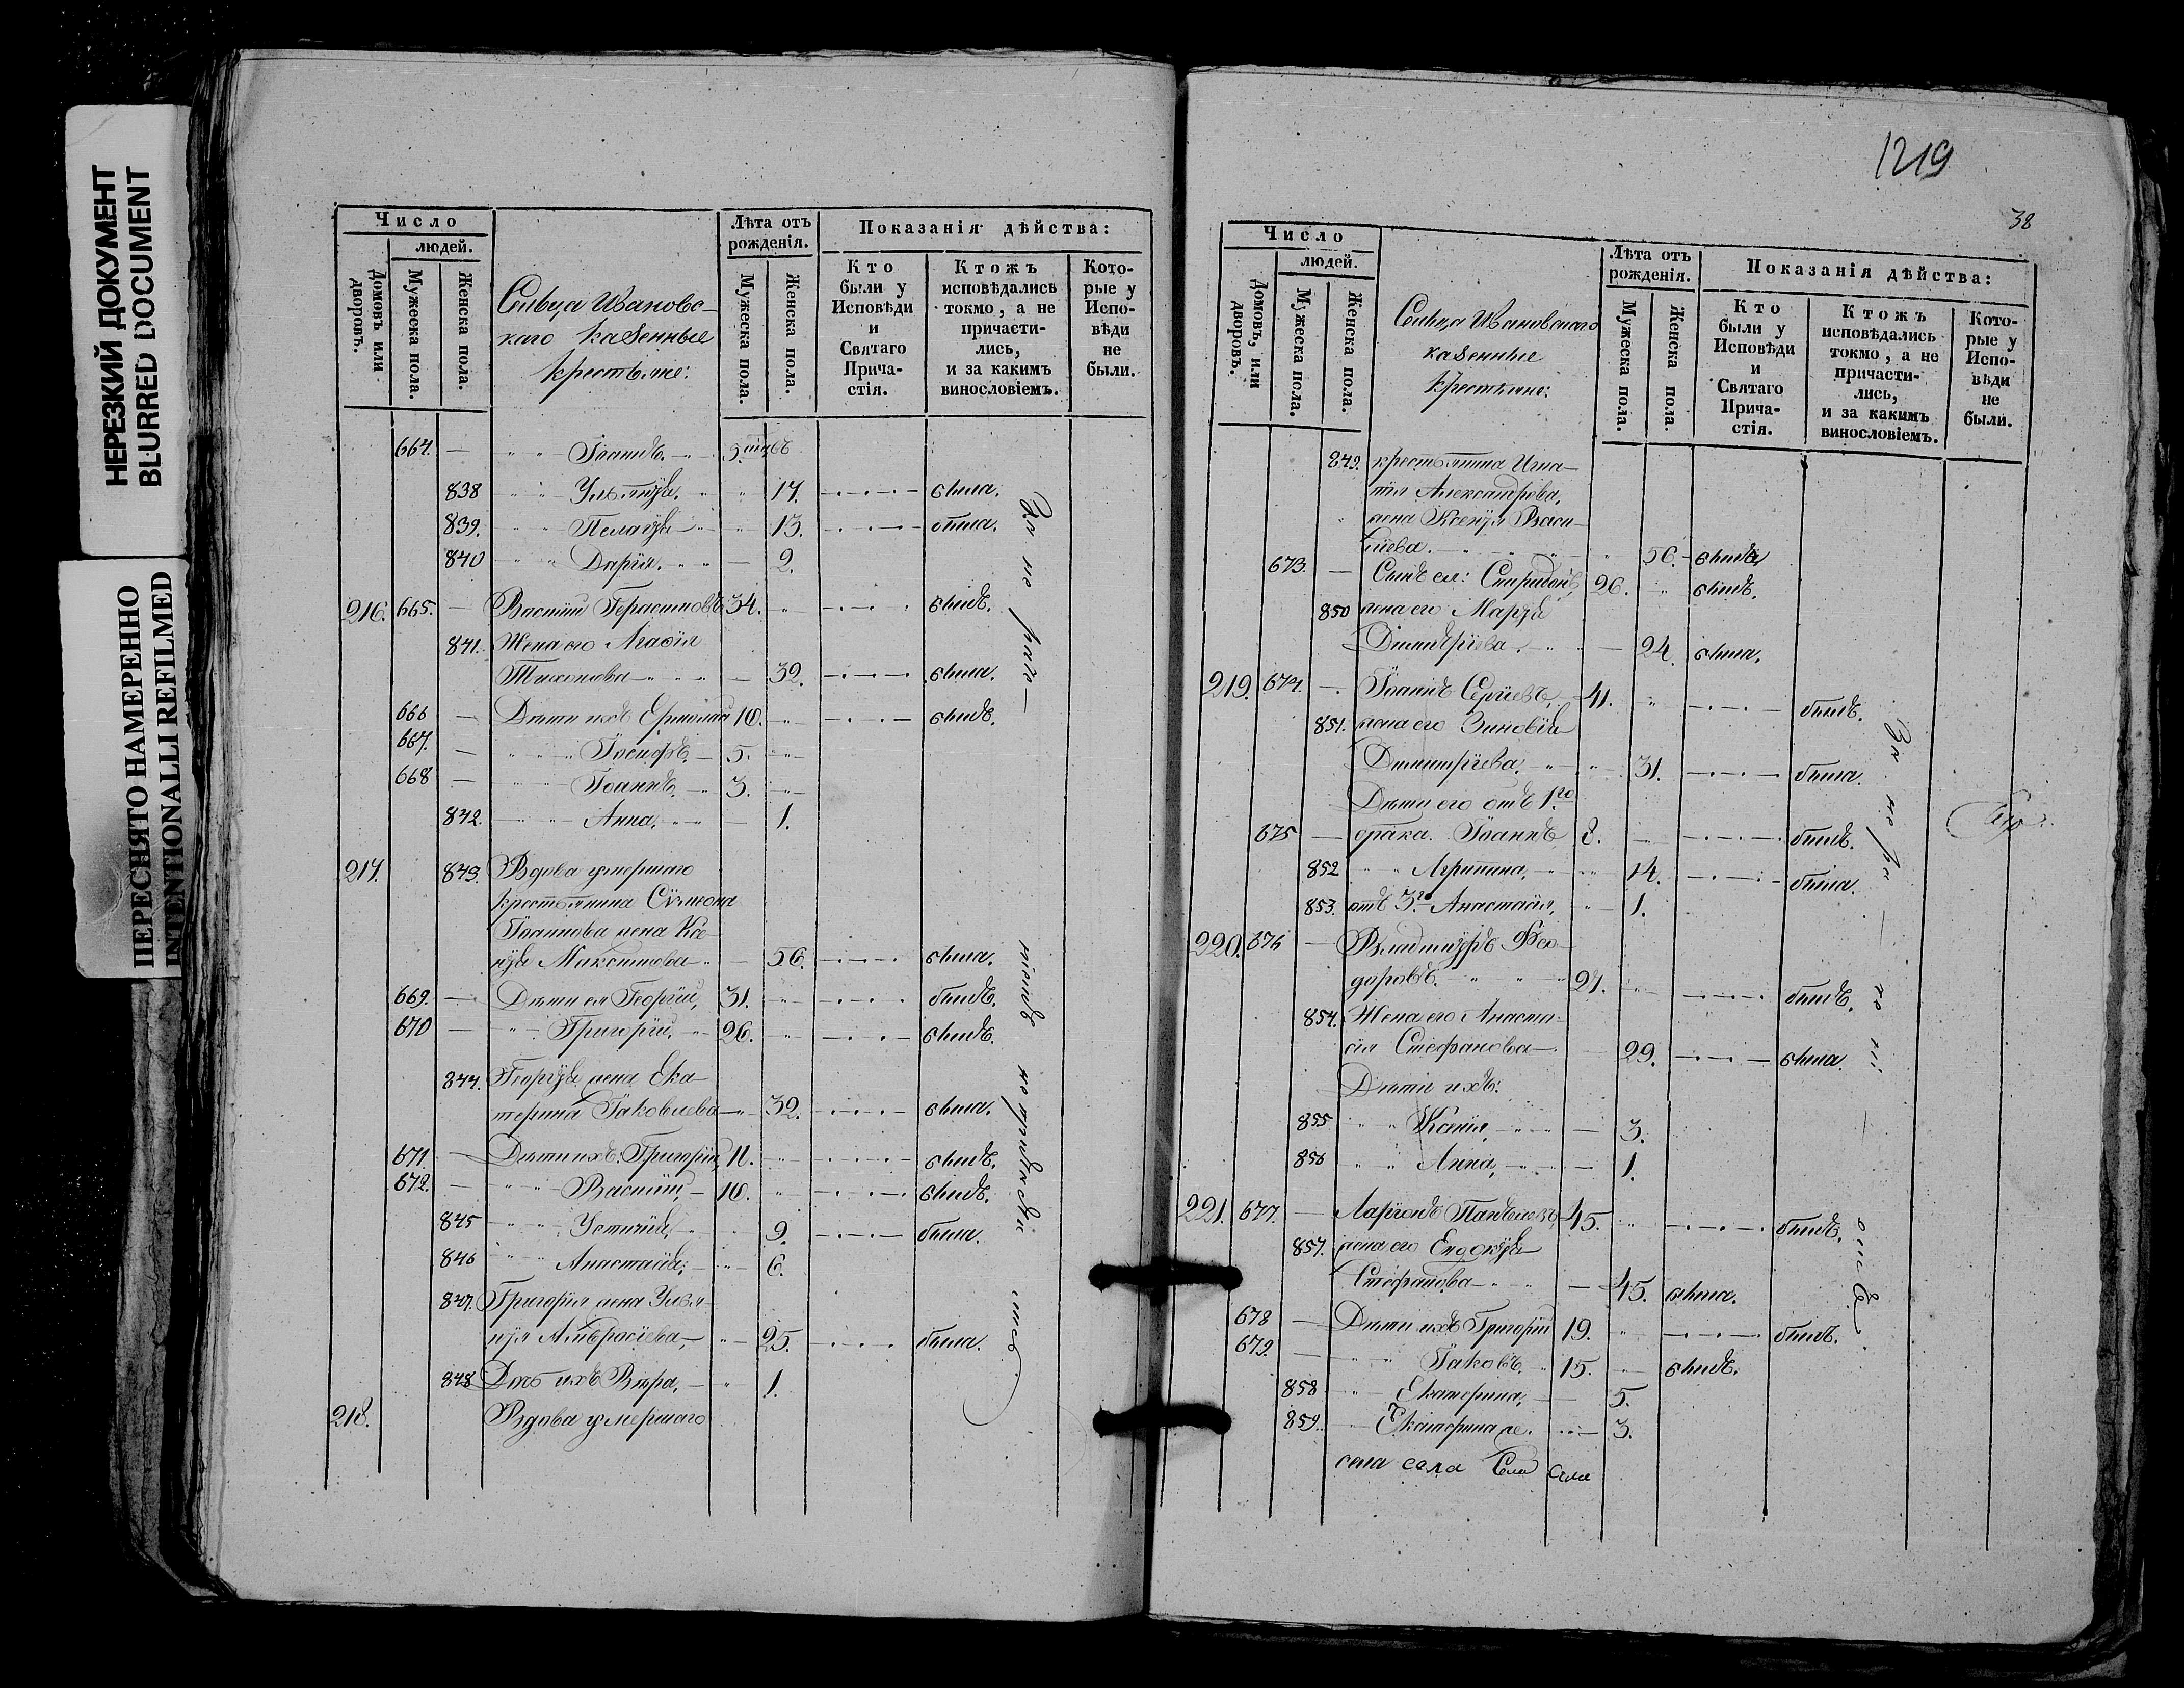 НЕРЕЗКИЙ ДОКУМЕНТ
BLURRED DOCUMENT
ПЕРЕСНЯТО НАМЕРЕННО
INTENTIONALLI REFILMED
Число
людей.
Домовъ или дворовъ.
Мужеска пола.
Женска пола.
Сельца Ивановс-
каго казенные
крестьяне:
Лѣта отъ
рожденія.
Мужеска пола.
Женска пола.
Показанія дѣйства:
Кто
были у
Исповѣди
и
Святаго
Прича-
стія.
Ктожъ
исповѣдались
токмо, а не
причасти-
лись,
и за какимъ
винословіемъ.
Кото-
рые у
Испо-
вѣди
не
были.
664. — " " Іоаннъ.
838 " " Ульянія. " 17. была.
839. " " Пелагія " 13. была.
840 " " Дарія. — 2.
216. 665. — Василій Герасимовъ 34. " былъ.
841. Жена его Агафія
Тихонова — 32. была.
666 — Дѣти ихъ Ермолай 10. былъ.
667. — " " Іосифъ, 5. "
668 — " " Іоаннъ. 3. "
842. " " Анна, — 1.
217. 843. Вдова умершаго
крестьянина Сѵмеона
Іоаннова жена Ксе-
нія Максимова — 56. была.
669. — Дѣти ея Георгій, 31. " былъ.
670 — " Григорій, 26. " былъ.
844. Георгія жена Ека-
терина Іаковлева — 32. была.
671. — Дѣти ихъ: Григорій, 11. " былъ.
672. — " " Василій, 10. " былъ.
845 " " Устинія, " 9. была.
846 " " Анастасія, " 6.
847. Григорія жена Улья-
нія Амвросіева, " 25. была.
848 Дочь ихъ Вѣра, " 1.
218. Вдова умершаго
За не раче-
ніемъ
1219
38
Число
людей.
Домовъ, или дворовъ.
Мужеска пола.
Женска пола.
Сельца Ивановскаго
казенные
крестьяне:
Лѣта отъ
рожденія.
Мужеска пола.
Женска пола.
Показанія дѣйства:
Кто
были у
Исповѣди
и
Святаго
Прича-
стія.
Ктожъ
исповѣдались
токмо, а не
причасти-
лись,
и за какимъ
винословіемъ.
Кото-
рые у
Испо-
вѣди
не
были.
849. крестьянина Игна-
тія Александрова,
жена Ксенія Васи-
ліева. " 50. была
673. — Сынъ ея: Спиридонъ, 26. " былъ.
850 жена его Марія
Димитріева. — 24. была.
219. 674. — Іоаннъ Сергіевъ, 41. " былъ.
851. жена его Зиновія
Димитріева, " 31. была.
Дѣти его отъ 1го
брака. 675 — Іоаннъ 8. былъ.
852 " " Агрипина, " 14. была.
853. отъ 3го Анастасія, " 1.
220. 676 — Владиміръ Ѳео-
доровъ. 27. " былъ.
854. Жена его Анаста-
сія Стефанова — 29. была.
Дѣти ихъ:
855 " " Ксенія, — 3.
856 " " Анна, — 1.
221. 677. — Ларіонъ 45. " былъ.
857. жена его Евдокія
Стефанова — 45. была.
678 — Дѣти ихъ Григорій 19. " былъ.
679. — " " Іаковъ. 15. былъ.
858 " Екатерина, — 5.
859. " Екатерина же. — 3.
села села Села Села
За не ра-
че-ні-
емъ.